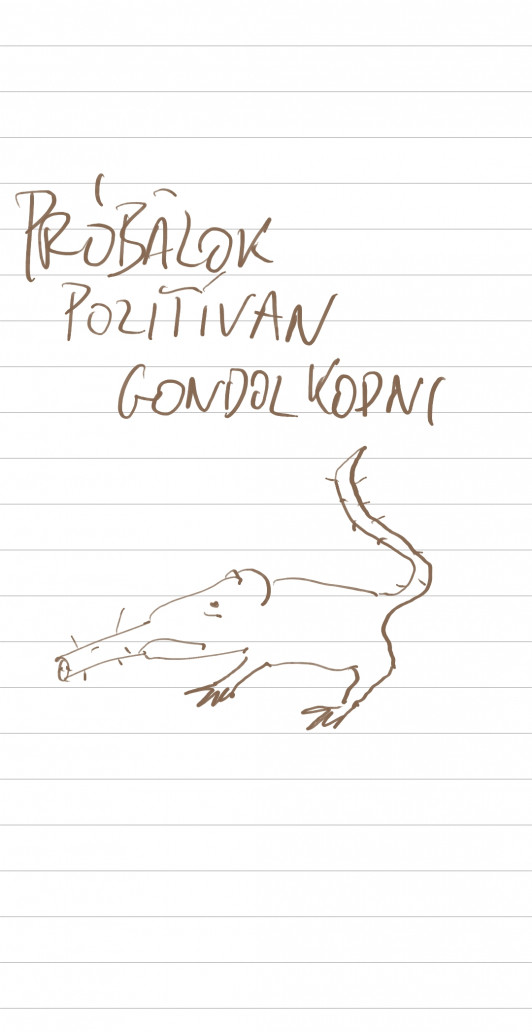 PRÓBÁLOK
POZITÍVAN
GONDOLKODNI